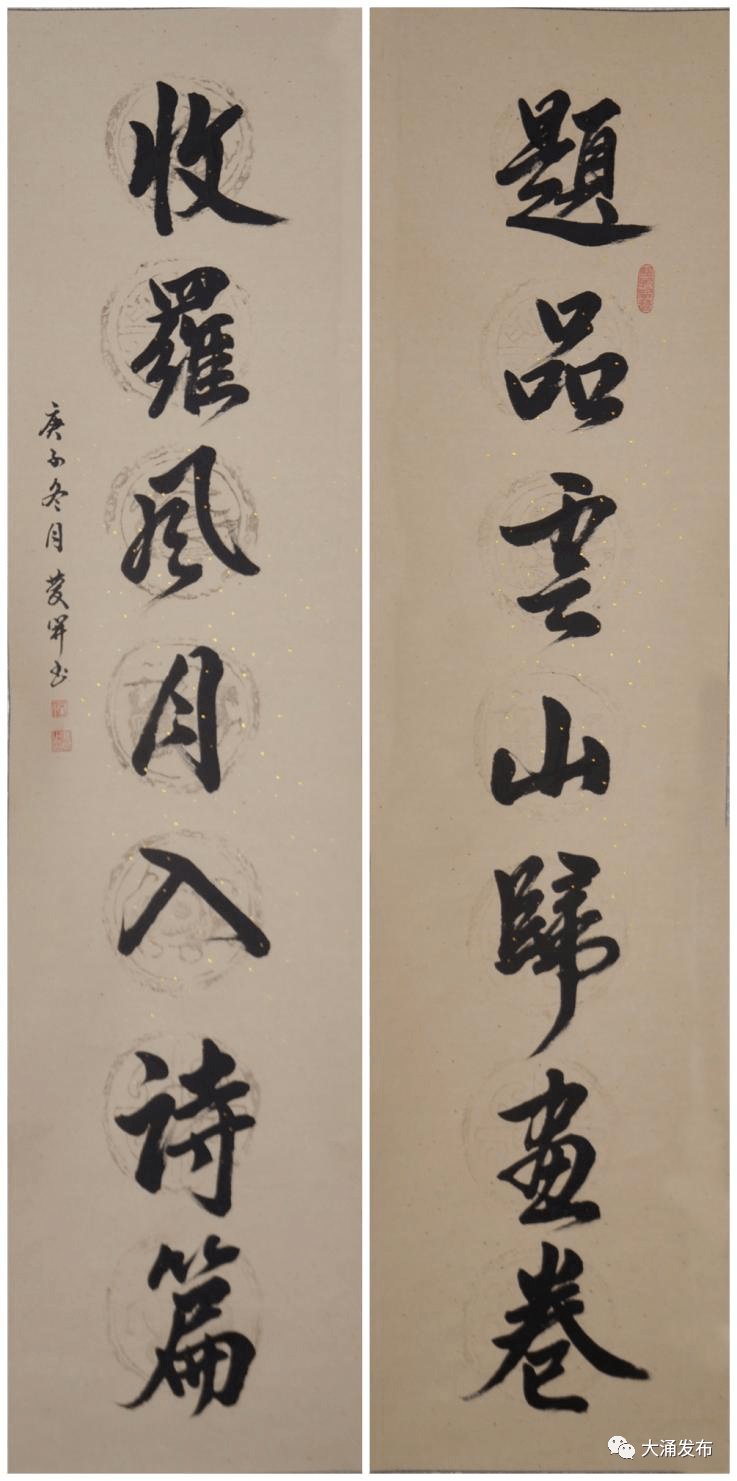 題品雲山歸畫卷
收羅風月入詩篇
庚子冬月
大涌发布